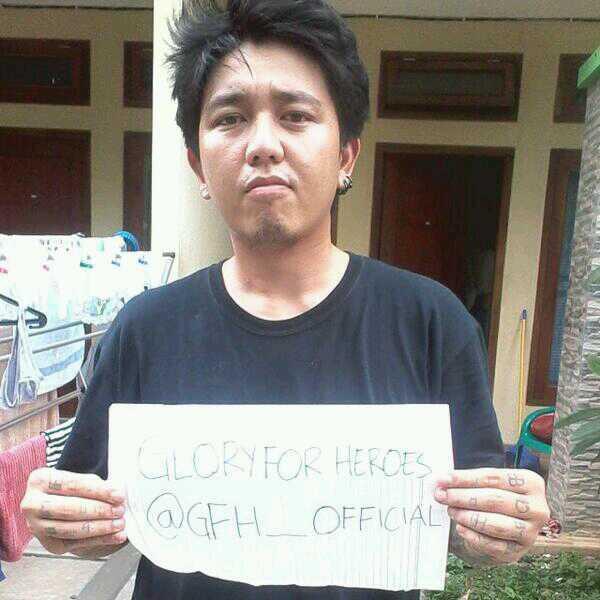 GLORY FOR HEROES
@GFH_OFFICIAL